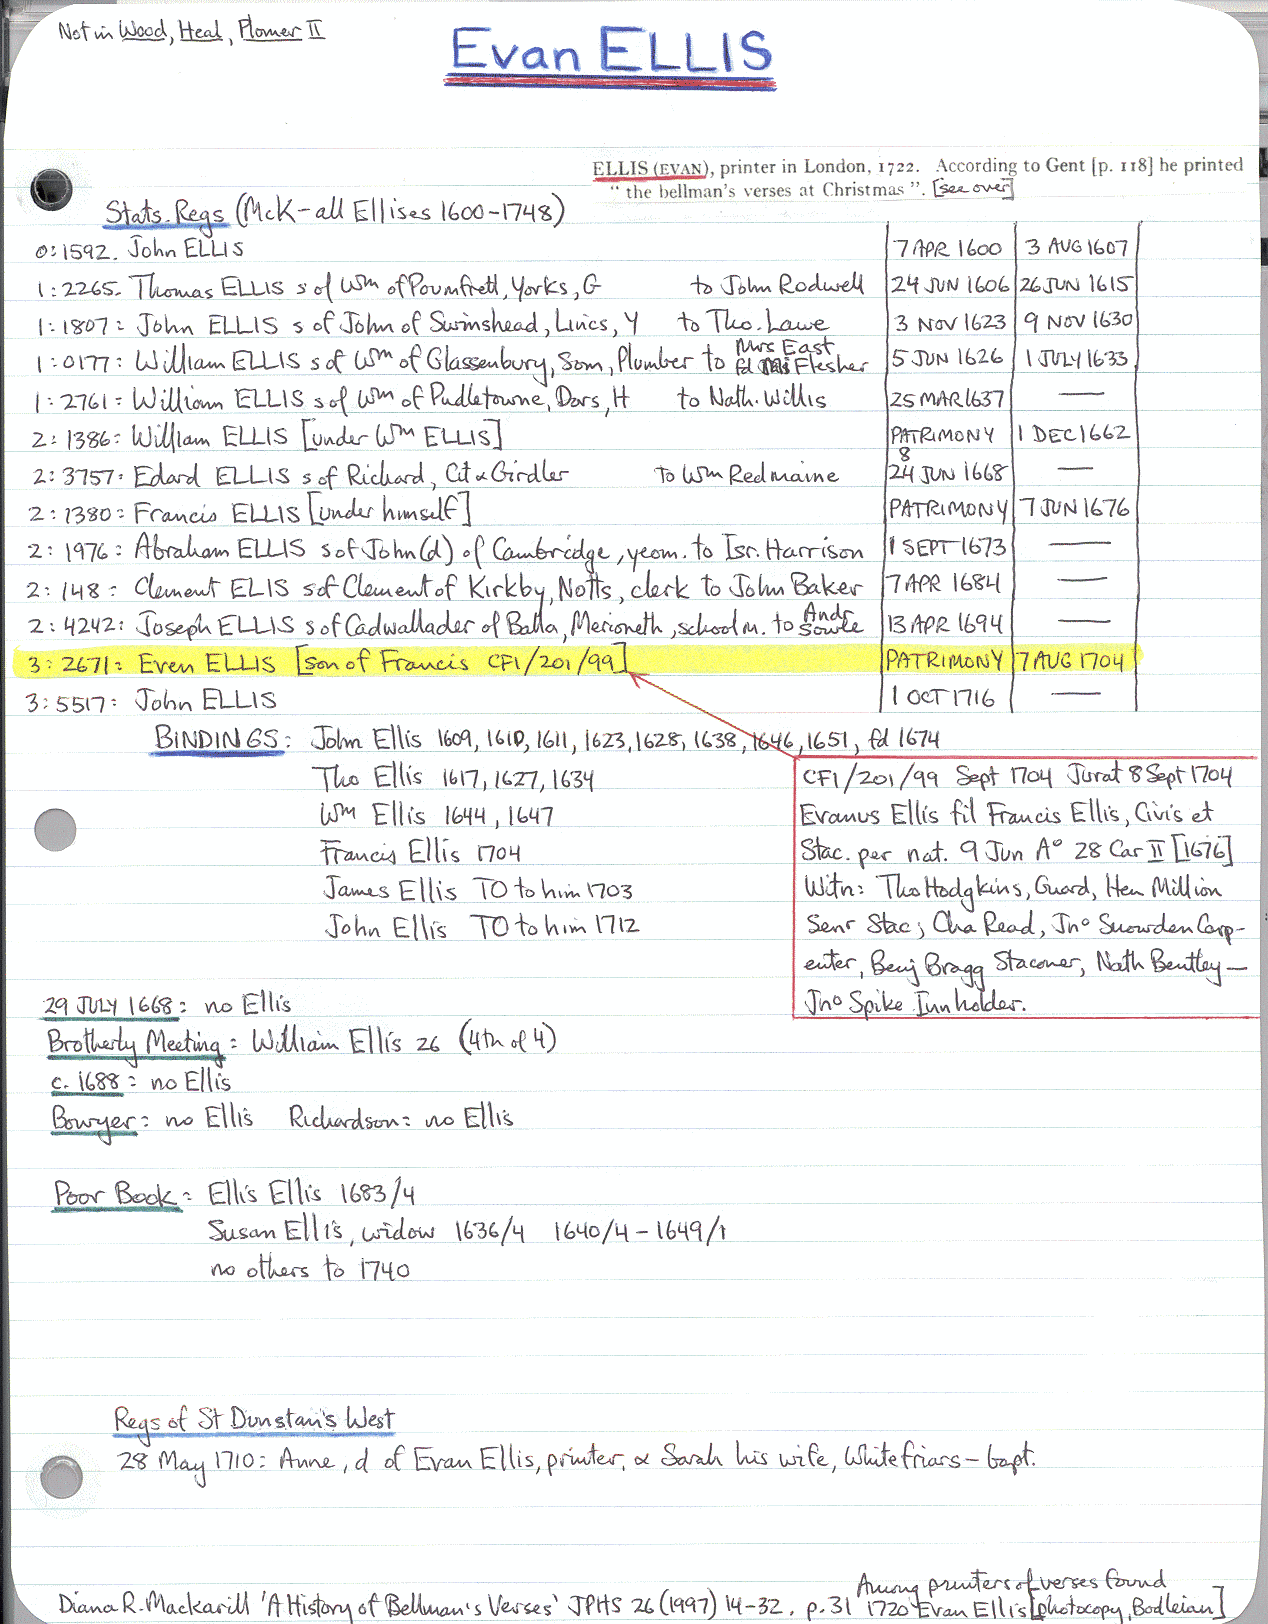 Not in Wood, Heal, Plomer II
Evan ELLIS
ELLIS (EVAN), printer in London, 1722. According to Gent [p. 118] he printed
" the bellman's verses at Christmas ". [see over]
Stats. Regs (McK-all Ellises 1600-1748)
0:1592. John ELLIS 7 APR 1600 3 AUG 1607
1:2265. Thomas ELLIS s of Wm of Poumfrett, Yorks, G to John Rodwell 24 JUN 1606 26 JUN 1615
1:1807: John ELLIS s of John of Swinshead, Lincs, Y to Tho. Lawe 3 NOV 1623 9 NOV 1630
1:0177: William ELLIS s of Wm of Glassenbury, Som, Plumber to Mrs East 5 JUN 1626 1 JULY 1633
fd Flesher
1:2761: William ELLIS s of Wm of Pudletowne, Dors, H to Nath. Willis 25 MAR 1637 —
2:1386: William ELLIS [under Wm ELLIS] PATRIMONY 1 DEC 1662
8
2:3757: Edard ELLIS s of Richard, Cit & Girdler to Wm Redmaine 24 JUN 1668 —
2:1380: Francis ELLIS [under himself] PATRIMONY 7 JUN 1676
2:1976: Abraham ELLIS s of John (d) of Cambridge, yeom. to Isr. Harrison 1 SEPT 1673 —
2:148: Clement ELIS s of Clement of Kirkby, Notts, clerk to John Baker 7 APR 1684 —
2:4242: Joseph ELLIS s of Cadwallader of Balla, Merioneth, school m. to Andr Sowle 13 APR 1694 —
3:2671: Even ELLIS [son of Francis CF1/201/99] PATRIMONY 7 AUG 1704
3:5517: John ELLIS 1 OCT 1716 —
BINDINGS: John Ellis 1609, 1610, 1611, 1623, 1628, 1638, 1646, 1651, fd 1674
Tho Ellis 1617, 1627, 1634
Wm Ellis 1644, 1647
Francis Ellis 1704
James Ellis TO to him 1703
John Ellis TO to him 1712
CF1/201/99 Sept 1704 Jurat 8 Sept 1704
Evanus Ellis fil Francis Ellis, Civis et
Stac. per nat. 9 Jun Ao 28 Car II [1676]
Witn: Tho Hodgkins, Guard, Hen Million
Senr Stac; Cha Read, Jno Snowden Carp-
enter, Benj Bragg Staconer, Nath Bentley—
Jno Spike Innholder.
29 JULY 1668: no Ellis
Brotherly Meeting: William Ellis 26 (4th of 4)
c. 1688: no Ellis
Bowyer: no Ellis Richardson: no Ellis
Poor Book: Ellis Ellis 1683/4
Susan Ellis, widow 1636/4 1640/4 - 1649/1
no others to 1740
Regs of St Dunstan's West
28 May 1710: Anne, d of Evan Ellis, printer, & Sarah his wife, Whitefriars - bapt.
Diana R. Mackarill 'A History of Bellman's Verses' JPHS 26 (1997) 14-32. p. 31 Among printers of verses found
1720 Evan Ellis [photocopy, Bodleian]